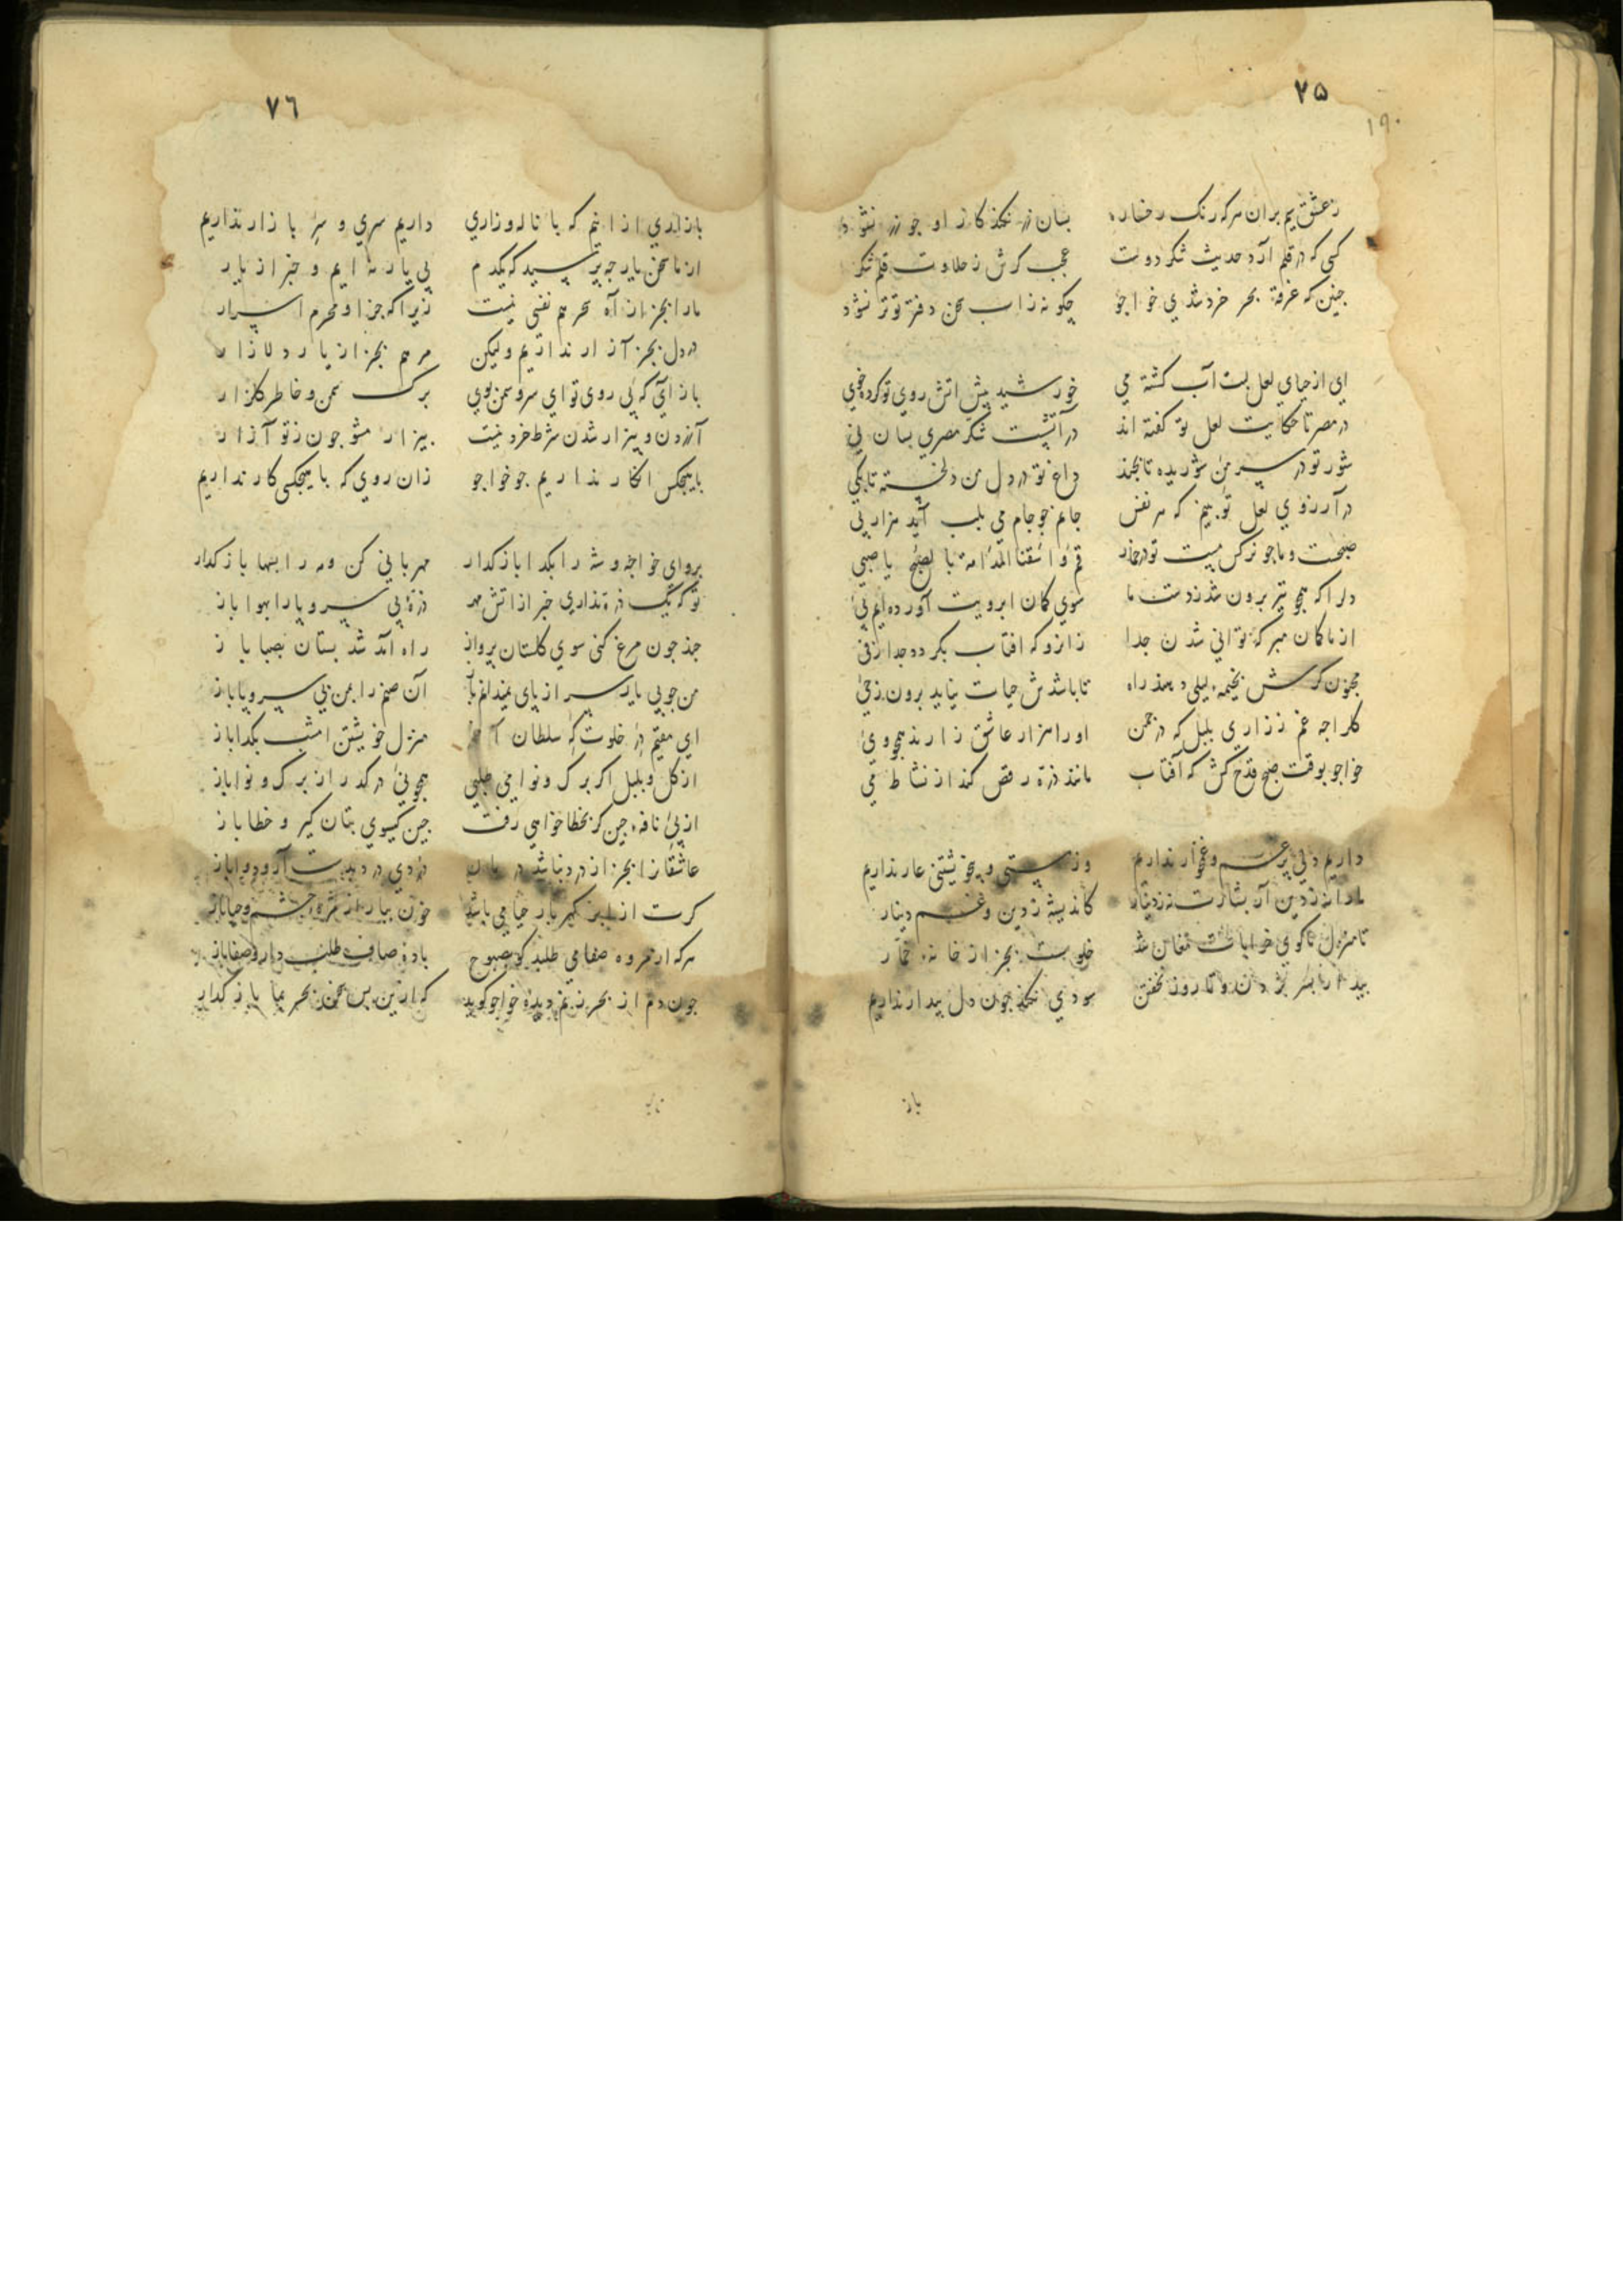 ٧۵
١٩٠
ز عشق سیم بران هر که رنگ رخساره بسان زر نکند کار او چو زر نشود
کسی که در قلم آرد حدیث شکر دوست عجب کرش ز حلاوت قلم شکر
چنین که غرقهٔ بحر خرد شدی خواجو چگونه ز آب سخن دفتر تو تر نشود
ای از حیای لعل لبت آب کشته می خورشید پیش اتش روی تو کرده خوی
در مصر تا حکایت لعل تو کفته اند در آتشست شکر مصری بسان نی
شور تو در سر من شوریده تا بچند داغ تو در دل من دلخسته تا بکی
در آرزوی لعل تو بینم که هر نفس جانم چو جام می بلب آید هزار پی
صبحست و ما چو نرکس مست تو در خمار قم و اسقنا المدامة بالصبح یا صبی
دلرا که همچو تیر برون شد ز دست ما سوی کمان ابرویت آورده ایم پی
از ما کمان مبر که توانی شدن جدا زانرو که افتاب نکردد جدا ز فی
مجنون کرش بخیمهٔ لیلی دهند راه تا باشدش حیات نیاید برون ز حی
کلرا چه غم ز زاری بلبل که در چمن او را هزار عاشق زارند همچو وی
خواجو بوقت صبح قدح کش که آفتاب مانند ذره رقص کند از نشاط می
داریم دلی پر غم و غمخوار نداریم وز مستی و بیخویشتنی عار نداریم
ما را نه ز دین آر بشارت نه ز دینار کاندیشه ز دین و غم دینار
تا منزل ما کوی خرابات مغان شد خلوت بجز از خانهٔ خمار
بیدار بسر بردن و تا روز نخفتن سودی نکند چون دل بیدار نداریم
باز
٧٦
باز آی ازانیم که با ناله و زاری داریم سری و سر بازار نداریم
از ما سخن یار چه پرسید که یکدم بی یار نه ایم و خبر از یار
ما را بجز از آه سحر هم نفسی نیست زیرا که جز او محرم اسرار
در دل بجز آزار نداریم ولیکن مرهم بجز از یار دلازار
باز آی که بی روی تو ای سرو سمن بوی برک سمن و خاطر کلزار
آزردن و بیزار شدن شرط خرد نیست بیزار مشو چون ز تو آزار
با هیچکس انکار نداریم چو خواجو زان روی که با هیچکسی کار نداریم
برو ای خواجه و شه را بکدا باز کدار مهربانی کن و مه را بسها باز کدار
تو که یک ذره نداری خبر از اتش مهر ذرهٔ بی سر و پا را بهوا باز
چند چون مرغ کنی سوی کلستان پرواز راه آمد شد بستان بصبا باز
من چو بی یار سر از پای نمیدانم باز آن صنم را بمن بی سر و پا باز
ای مقیم در خلوتکه سلطان منزل خویشتن امشب بکدا باز
از کل و بلبل اکر برک و نوا می طلبی همچو نی در کدر از برک و نوا باز
از پی نافهٔ چین کر بخطا خواهی رفت چین کیسوی بتان کیر و خطا باز
عاشقانرا بجز از درد نباشد درمان دردی درد بدست آر و دوا باز
کرت از ابر کهربار حیا می باشد خون ببار از مژه چشم و حیا باز
هر که از مروه صفا می طلبد کو بصبوح بادهٔ صاف طلب دار و صفا باز
چون دم از بحر زنم دیدهٔ خواجو کوید که ازین پس سخن بحر بما باز کدار